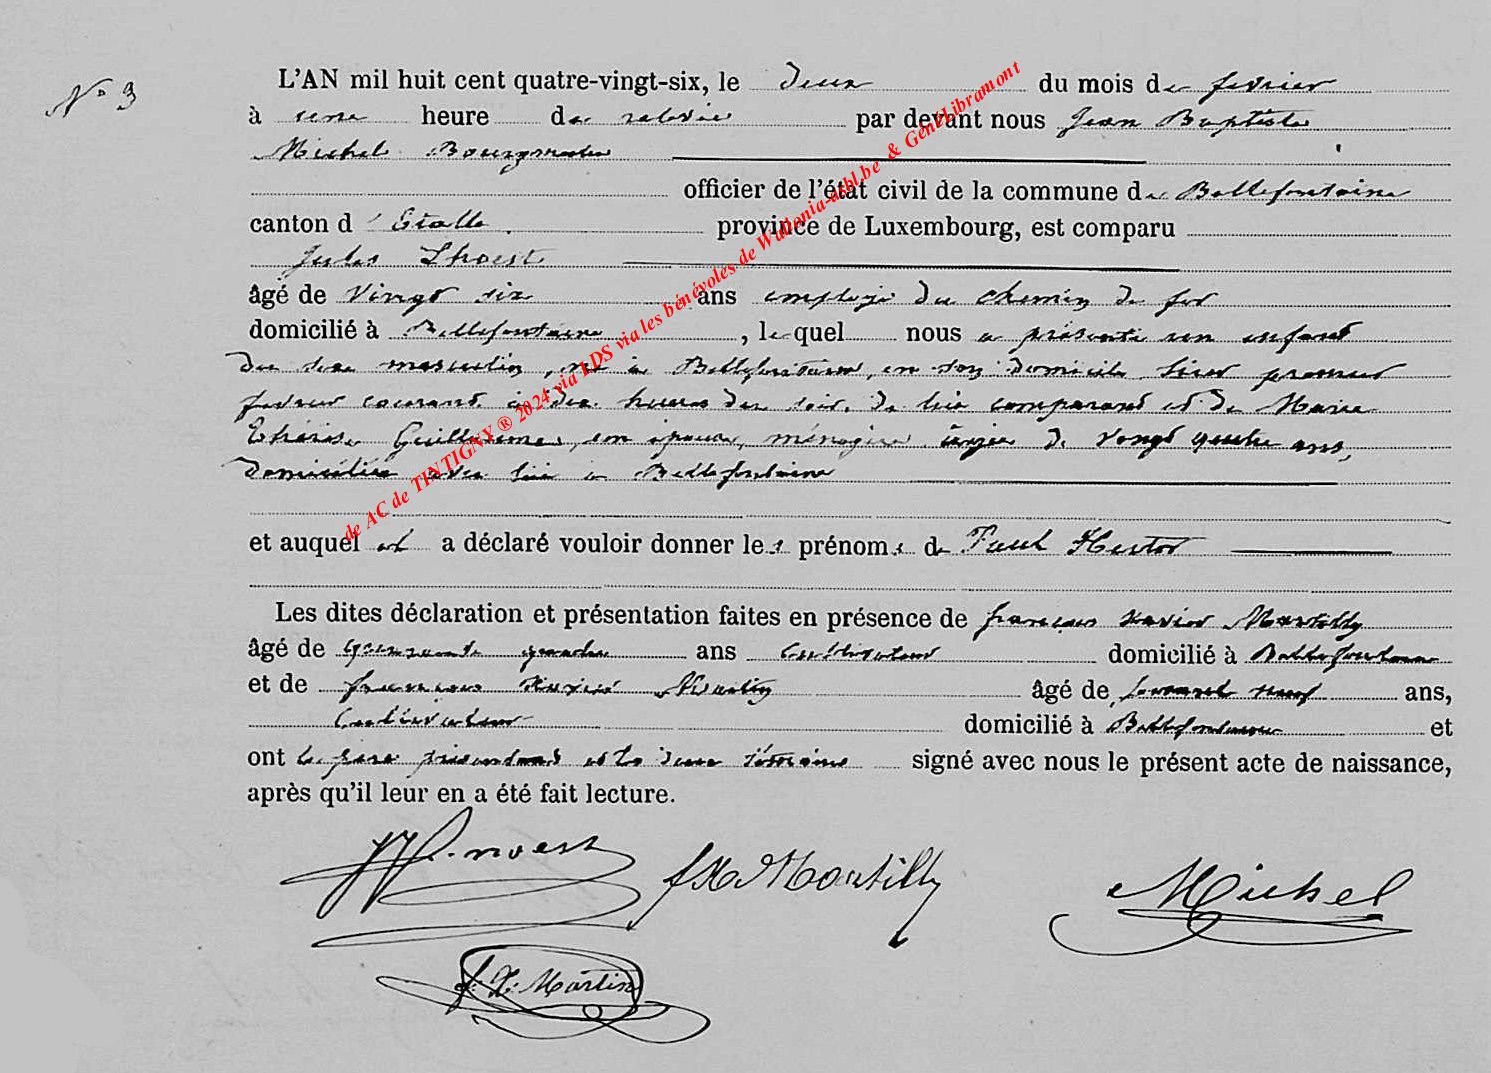 N° 3
L'AN mil huit cent quatre-vingt-six, le deux du mois de fevrier
à une heure de relevée par devant nous Jean Baptiste
Michel Bourgmestre
officier de l'état civil de la commune de Bellefontaine
canton d'Etalle province de Luxembourg, est comparu
Jules Lhoest
âgé de vingt six ans employé du chemin de fer
domicilié à Bellefontaine, lequel nous a présenté un enfant
du sexe masculin, né à Bellefontaine, en son domicile, hier premier
fevrier courant, à dix heures du soir, de lui comparant et de Marie
Thérèse Guillaume, son épouse, ménagère âgée de vingt quatre ans,
domiciliée avec lui à Bellefontaine
et auquel il a déclaré vouloir donner les prénoms de Paul Hector
Les dites déclaration et présentation faites en présence de françois Xavier Martilly
âgé de ans cultivateur domicilié à Bellefontaine
et de françois Xavier Martin âgé de soixante neuf ans,
Cultivateur domicilié à Bellefontaine et
ont le père présentant et les deux témoins signé avec nous le présent acte de naissance,
après qu'il leur en a été fait lecture.
Lhoest fX Martilly Michel
f. X. Martin
de AC de TINTIGNY ® 2024 via LDS via les bénévoles de Wallonia-asbl.be & GeneLibramont